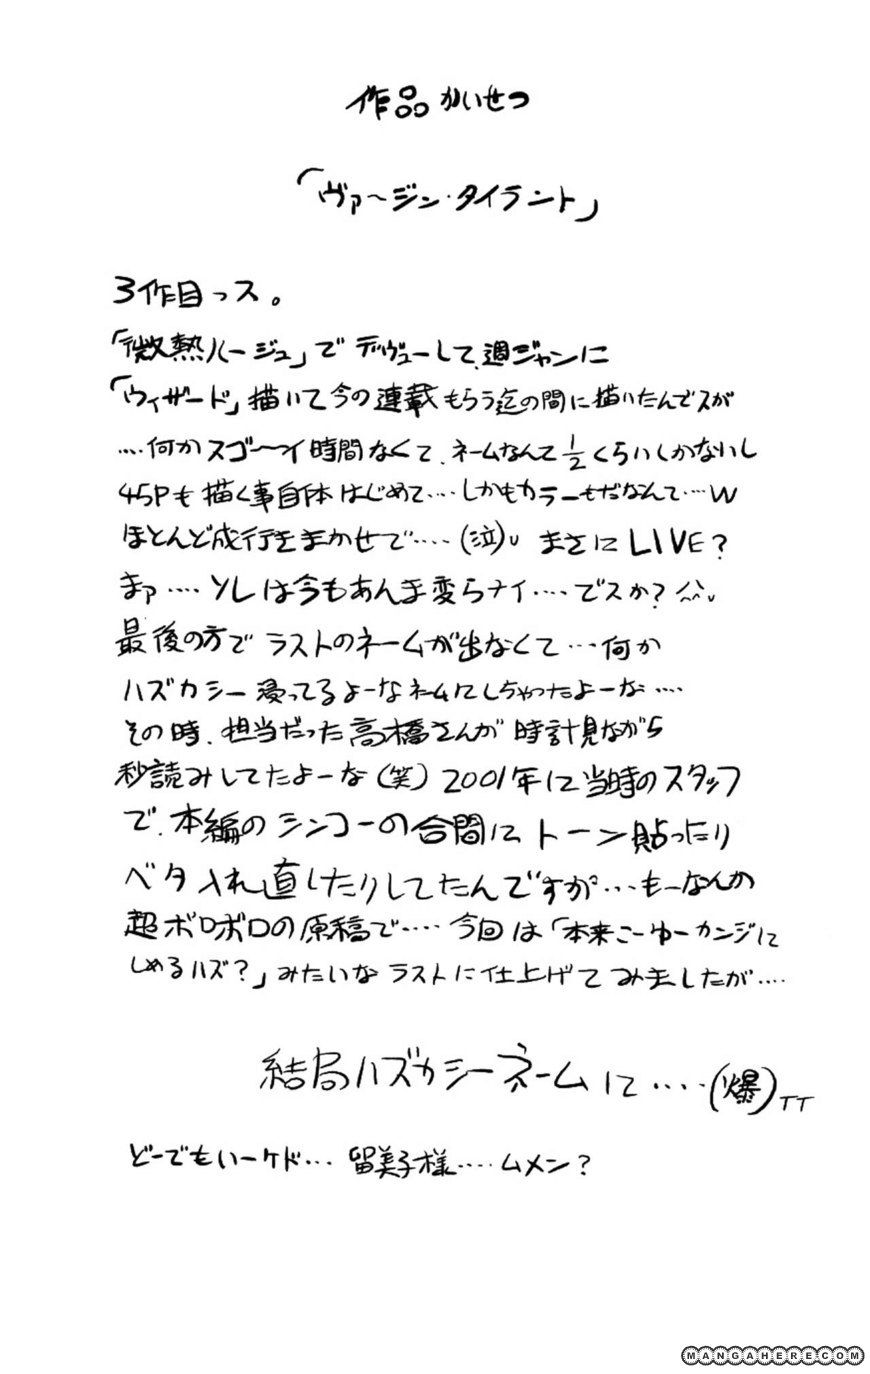 作品かいせつ
「ヴァ〜ジン・タイラント」
3作目っス。
「微熱ルージュ」でデヴューして、週ジャンに
「ウィザード」描いて今の連載もらう迄の間に描いたんでスが
....何かスゴ〜イ時間なくて、ネームなんて1/2くらいしかないし
45Pも描く事自体はじめて....しかもカラーもだなんて...W
ほとんど成行きまかせで....(泣)、まさにLIVE?
まァ....ソレは今もあんま変らナイ....でスか?^^、
最後の方でラストのネームが出なくて...何か
ハズカシー浸ってるよーなネームにしちゃったよーな....
その時、担当だった高橋さんが時計見ながら
秒読みしてたよーな(笑)2001年に当時のスタッフ
で、本編のシンコーの合間にトーン貼ったり
ベタ入れ直したりしてたんですが...もーなんか
超ボロボロの原稿で....今回は「本来こーゆーカンジに
しめるハズ?」みたいなラストに仕上げてみましたが....
結局ハズカシーネームに....(爆)TT
どーでもいーケド...留美子様....ムメン?
MANGAHERE.COM